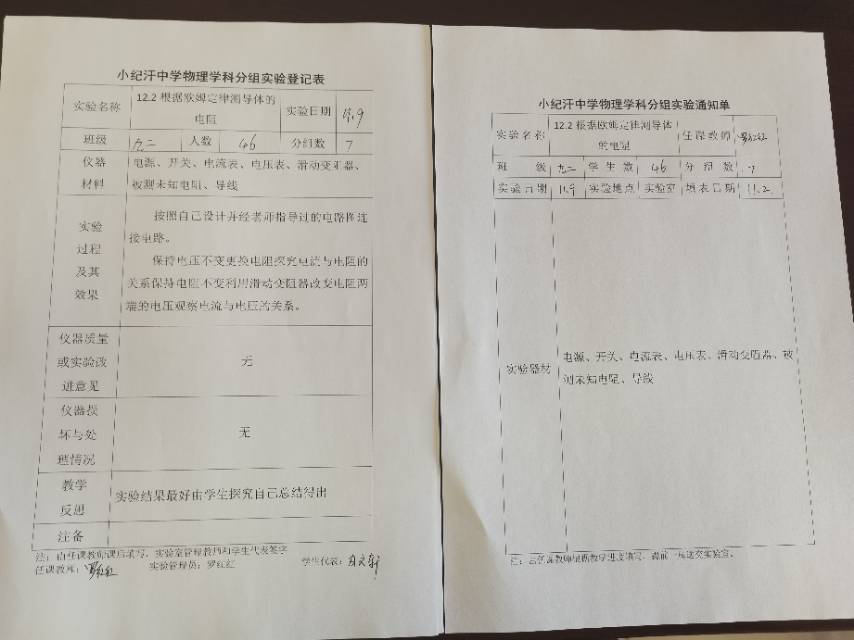 小纪汗中学物理学科分组实验登记表
实验名称 12.2根据欧姆定律测导体的电阻 实验日期 11.9
班级 九二 人数 46 分组数 7
仪器材料 电源、开关、电流表、电压表、滑动变阻器、
被测未知电阻、导线
实验过程及其效果 按照自己设计并经老师指导过的电路图连
接电路。
保持电压不变更换电阻探究电流与电阻的
关系保持电阻不变利用滑动变阻器改变电阻两
端的电压观察电流与电压的关系。
仪器质量或实验改进意见 无
仪器损坏与处理情况 无
教学反思 实验结果最好由学生探究自己总结得出
注备
注：由任课教师课后填写，实验室管理教师和学生代表签字
任课教师： 罗红红 实验管理员：罗红红 学生代表：
小纪汗中学物理学科分组实验通知单
实验名称 12.2根据欧姆定律测导体的电阻 任课教师 罗红红
班级 九二 学生数 46 分组数 7
实验日期 11.9 实验地点 实验室 填表日期 11.2
实验器材 电源、开关、电流表、电压表、滑动变阻器、被
测未知电阻、导线
注：由任课教师根据教学进度填写，提前一周送交实验室。